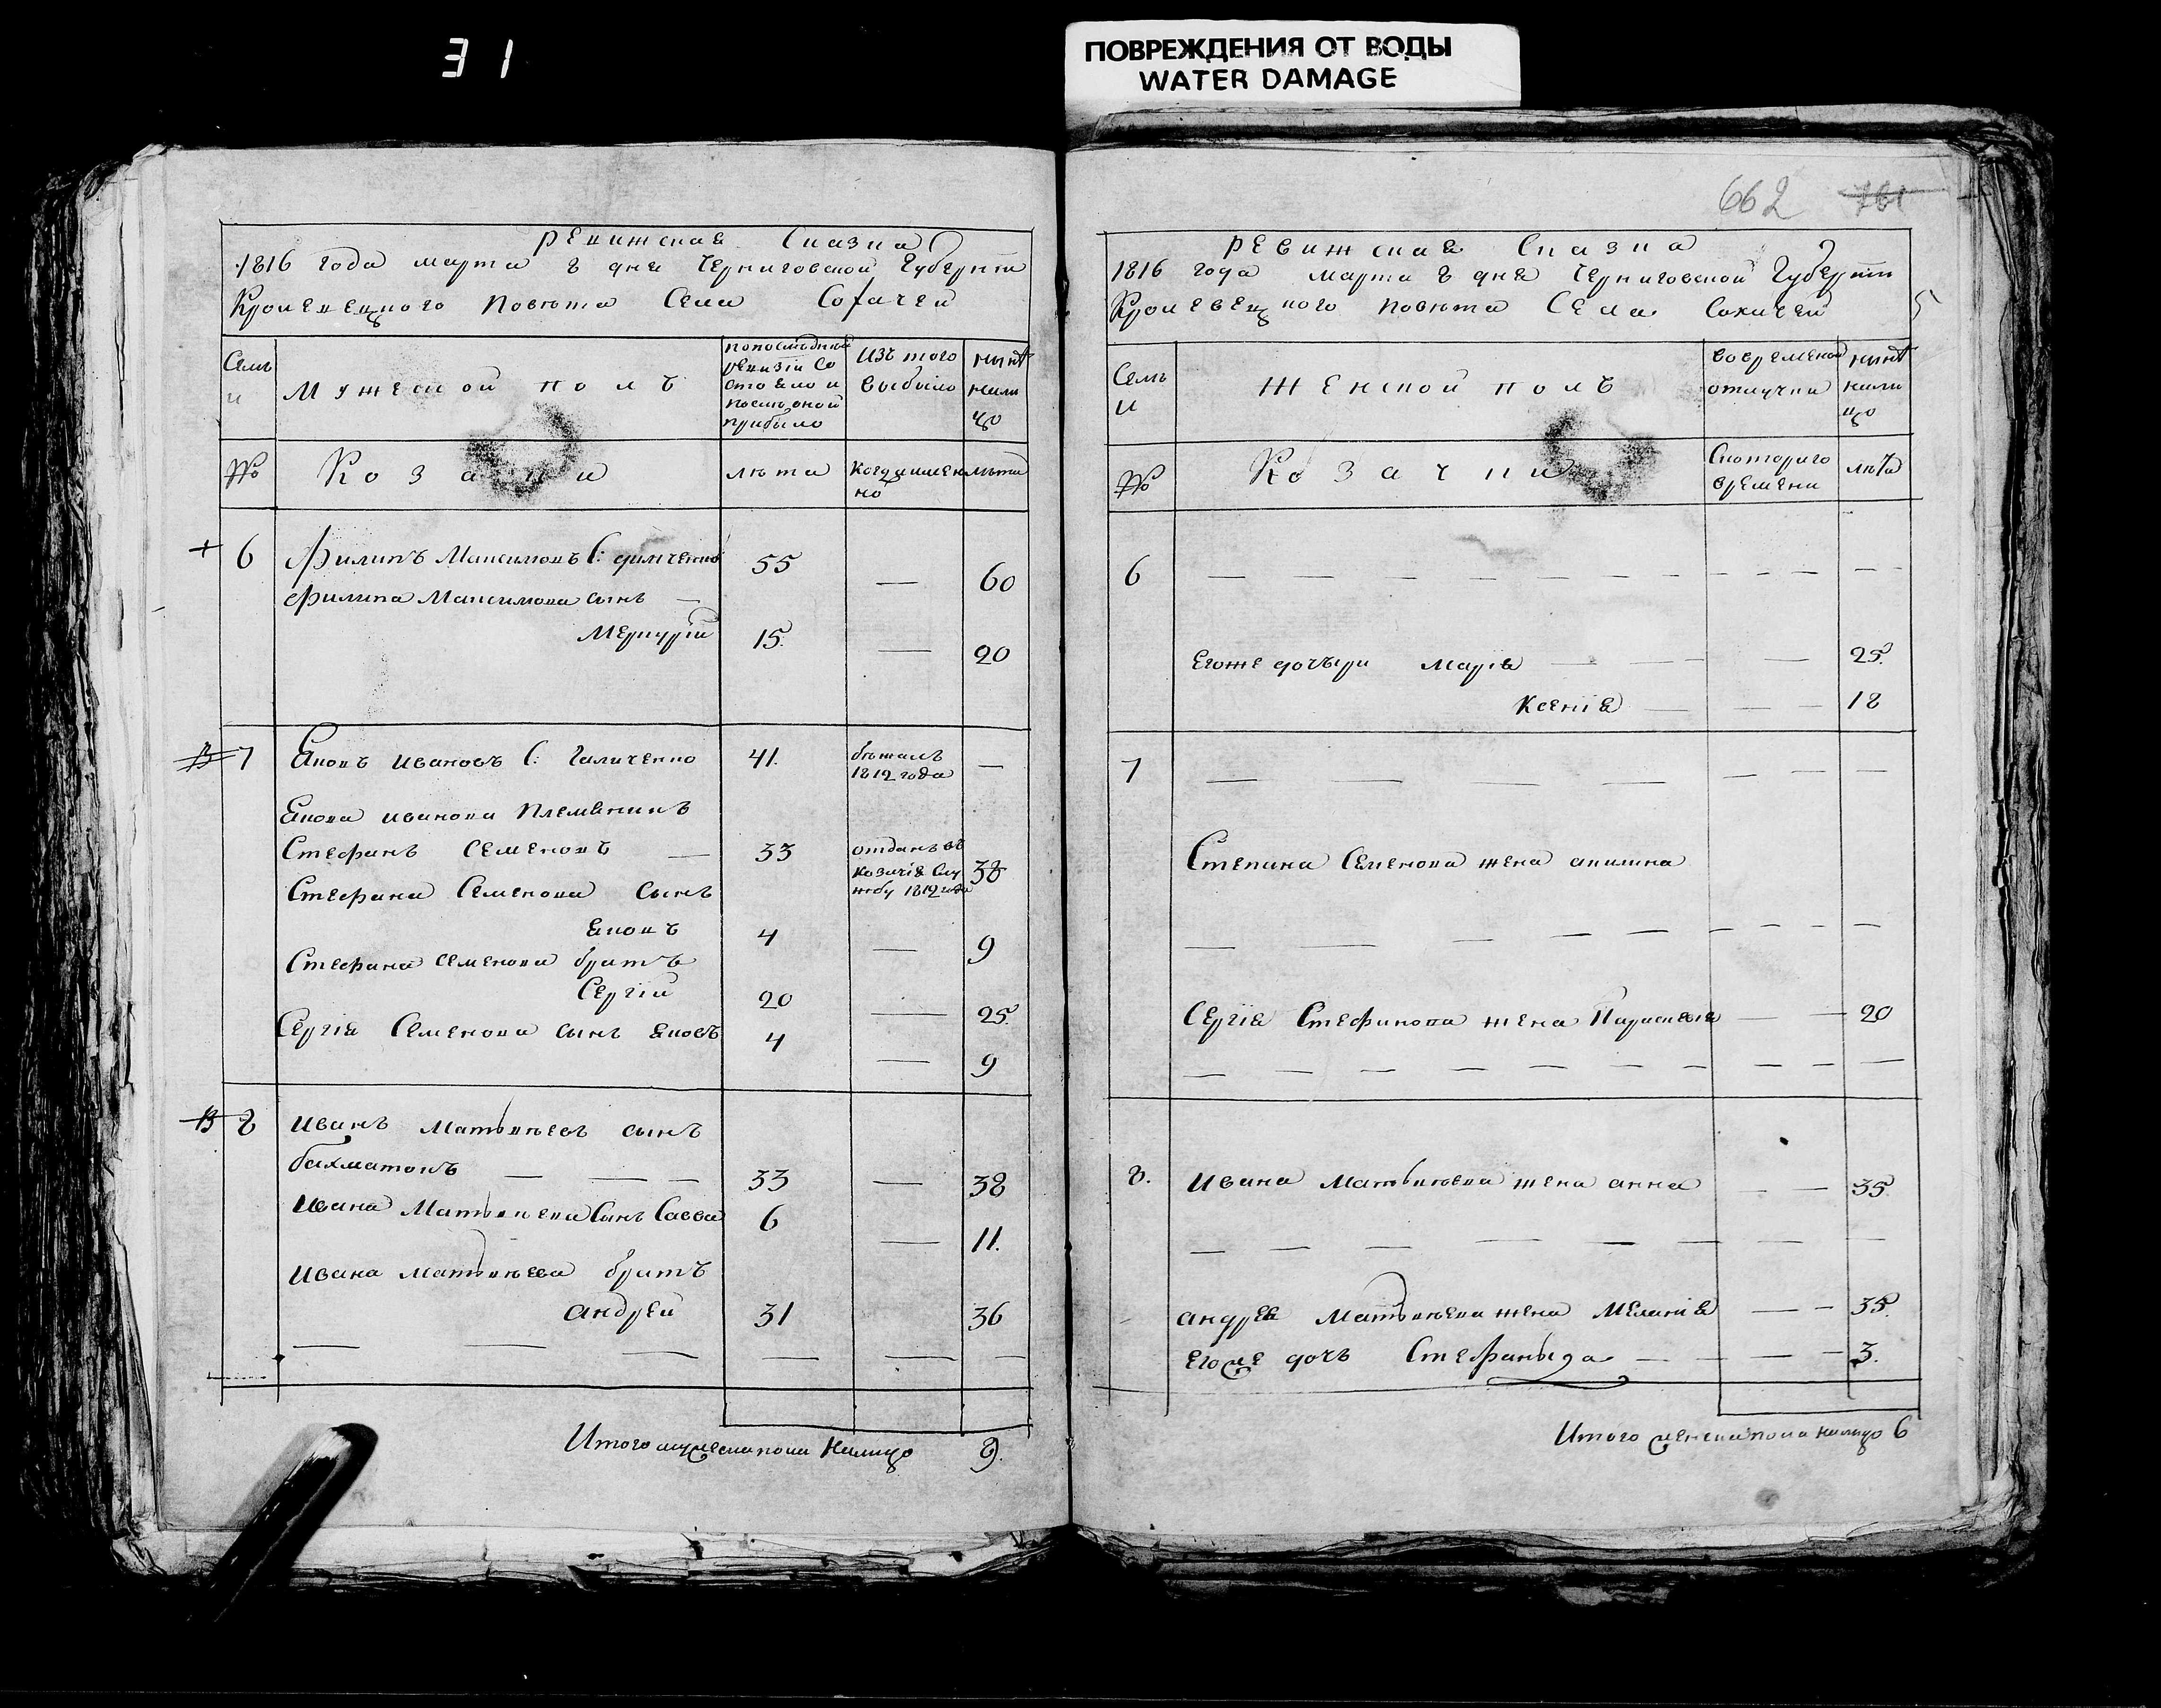 31
ПОВРЕЖДЕНИЯ ОТ ВОДЫ
WATER DAMAGE
Ревижская Сказка
1816 года марта 8 дня Черниговской Губернiи
Кролевецкого Повѣта Села
Семь
и
Мужеской полъ
попослѣдней
ревизiи Со
стояло и
послѣ оной
прибыло
Изъ того
выбыло
нынѣ
нали
цо
№
Козачки
лѣта
когда имен
но
лѣта
6
Филипъ Максимовъ С:
55
—
60
Филипа Максимова сынъ —
Меркурiй
15.
—
20
7
Яковъ Ивановъ С: Галиченко
41.
бѣжалъ
1812 года
—
Якова Иванова Племяникъ
Стефанъ Семеновъ —
33
отданъ въ
козачiя слу
жбу 1812 года
38
Стефана Семенова Сынъ
Яковъ
4
—
9
Стефана Семенова братъ
Сергiй
20
—
25.
Сергiя Семенова сынъ Яковъ
4
—
9
8
Иванъ Матвѣевъ сынъ
бахматовъ — — —
33
—
38
Ивана Матвѣева Сынъ Савва
6
—
11.
Ивана Матвѣева братъ
Андрей
31
36
— — — — — —
Итого мужеска пола налицо 9.
662 761
Ревижская Сказка
1816 года марта 8 дня Черниговской Губернiи
Кролевецкого Повѣта Села Сохачей
Семь
и
Женской полъ
вовременой
отлучки
нынѣ
нали
цо
№
Козачки
Скоторого
времени
лѣта
6 — — — — — — — — — — — — —
Егоже дочъри Марiя — — — — 25.
Ксенiя — — — 18
7 — — — — — — — —
Степана Семенова жена акилина
— — — — — — — — —
Сергiя Стефанова жена Параскевiя — — 20
— — — — — — — — — —
8. Ивана Матвѣева жена анна — — 35.
— — — — — — — — —
андрея Матвѣева жена Меланiя — — 35.
Егоже дочъ Стефаныда — — — — 3.
Итого женска пола налицо 6